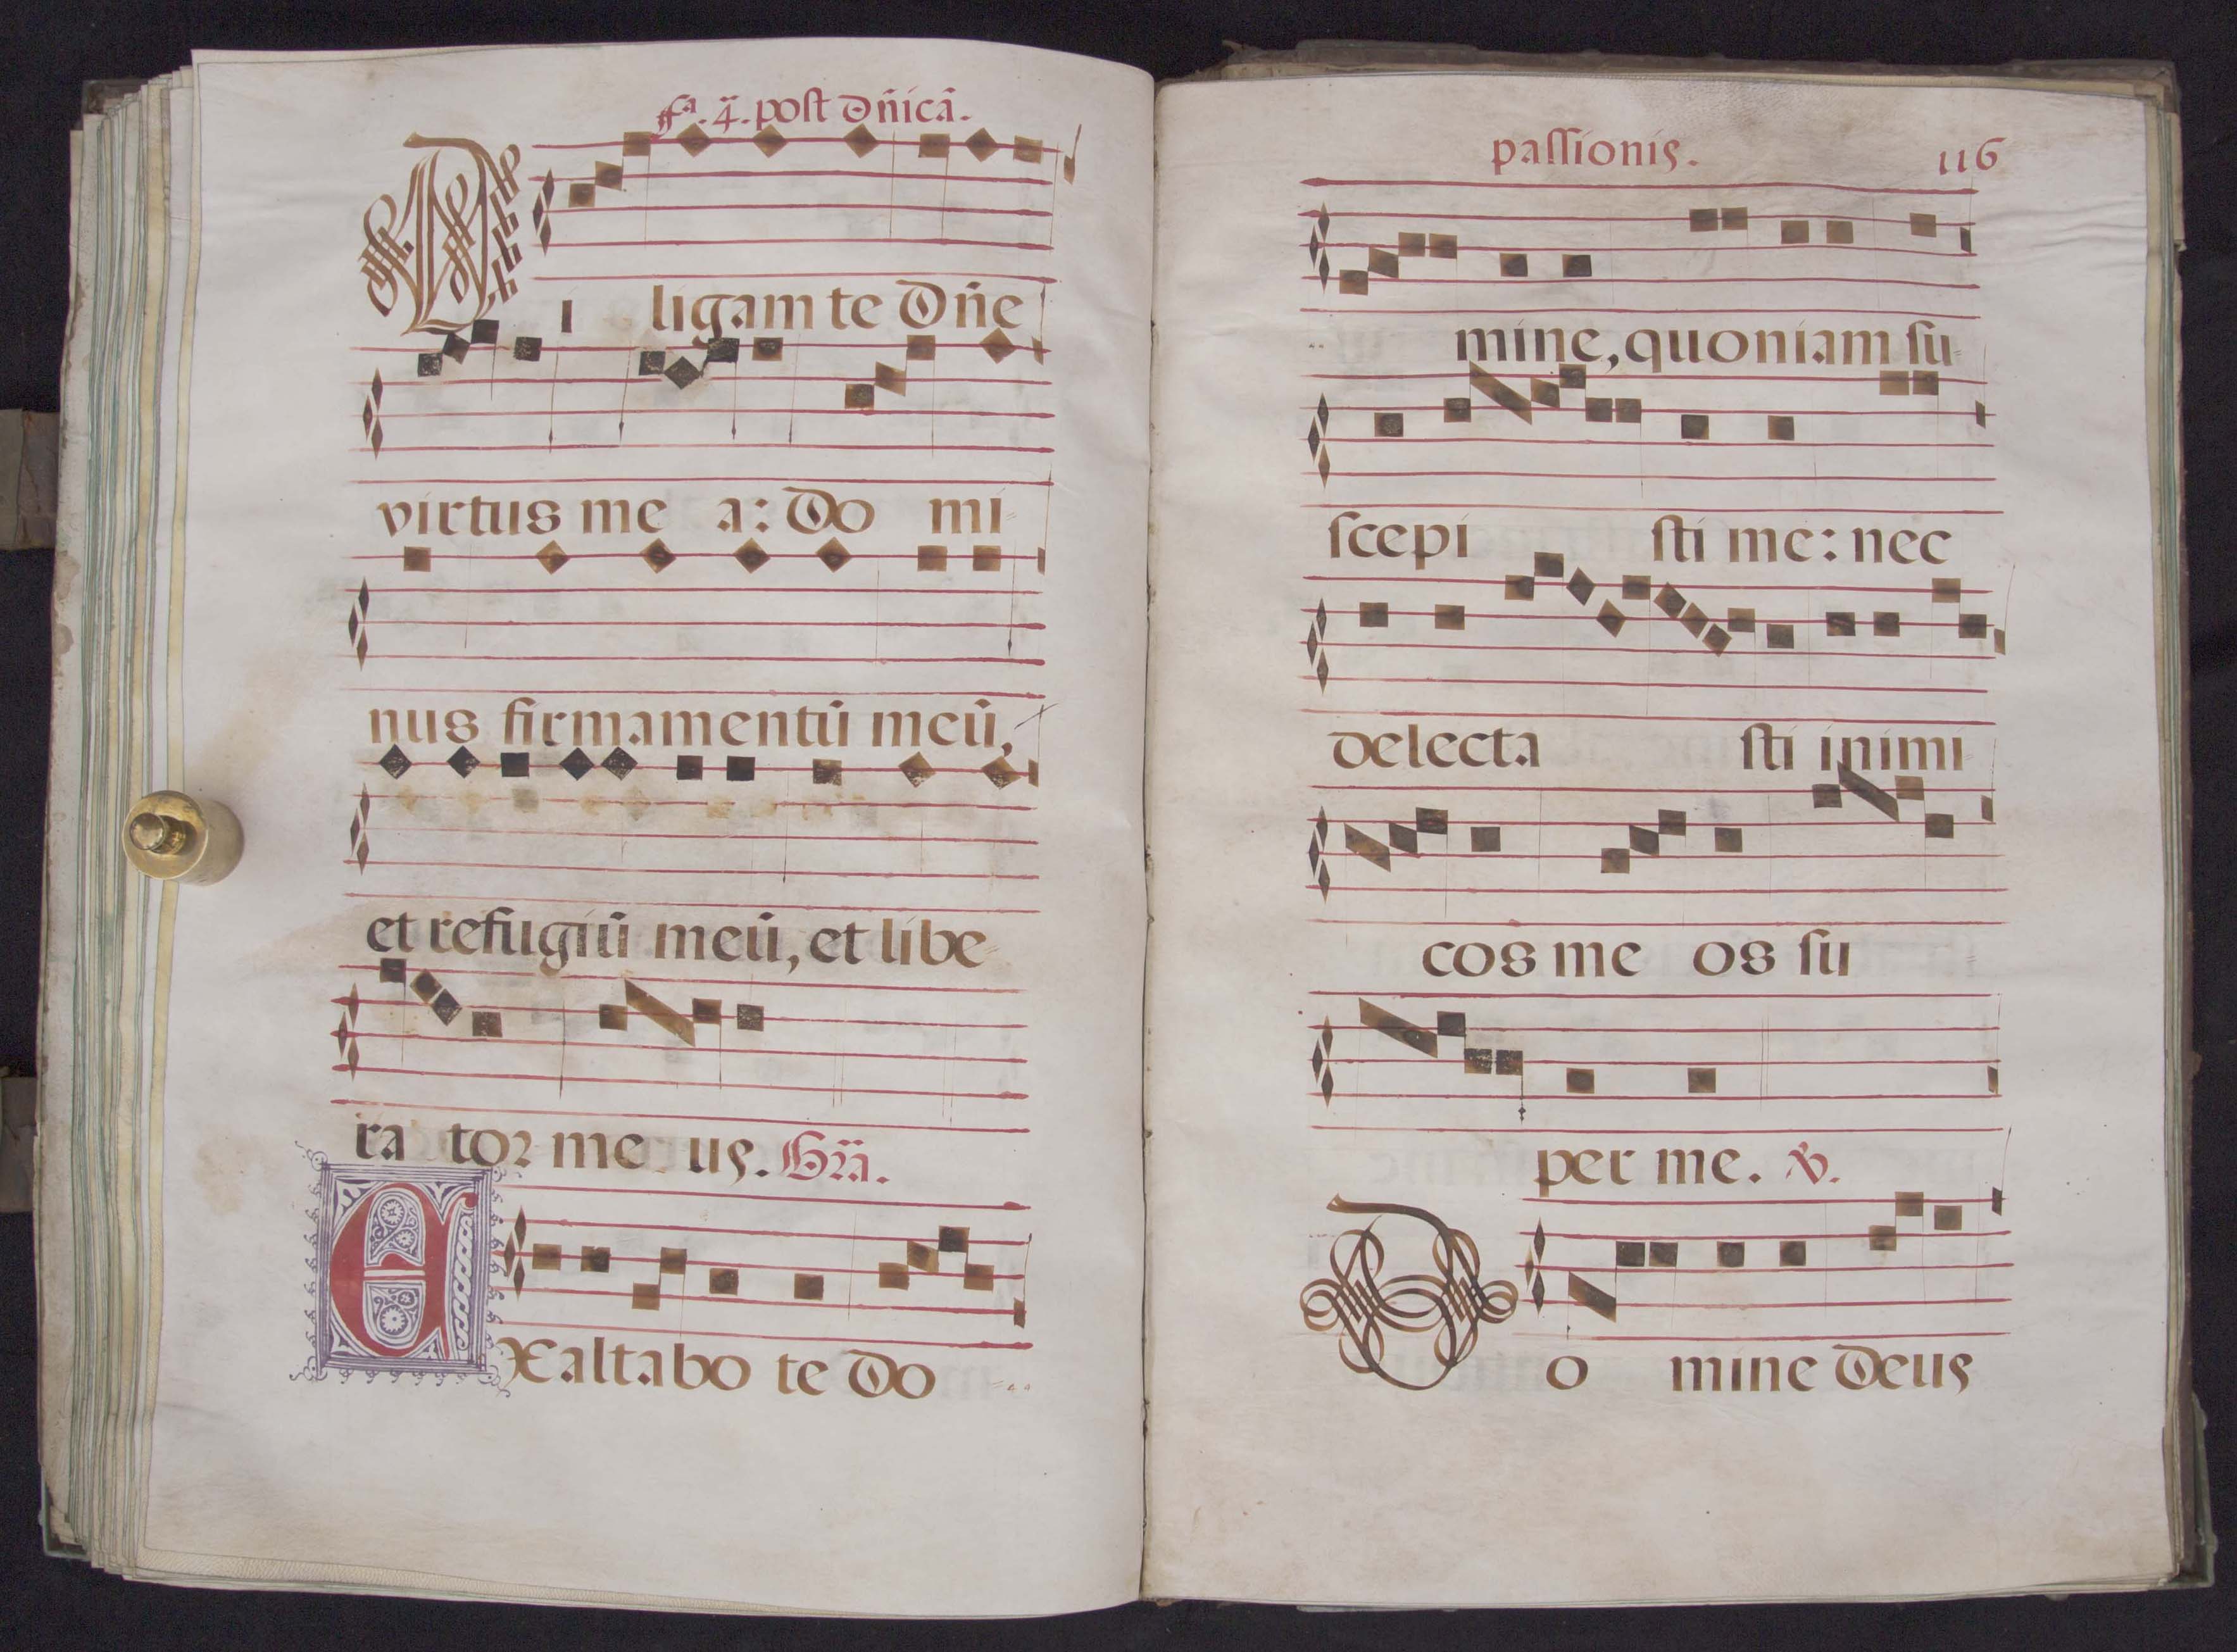 fᵃ. 4ᵃ. post dñicã.
Diligam te dñe
virtus mea: do mi-
nus firmamentũ meũ,
et refugiũ meũ, et libe-
rator meus. Grã.
Exaltabo te do-
passionis. 116
mine, quoniam su-
scepisti me: nec
delectasti inimi-
cos meos su
per me. ℣.
Domine deus